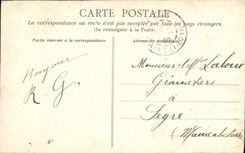 CARTE POSTALE
La correspondance au recto n'est pas acceptée par tous les pays étrangers
(Se renseigner à la Poste)
Partie réservée à la correspondance
Bonjour
R G.
Monsieur
Grainetiers
à
Segré
(Maine et Loire)